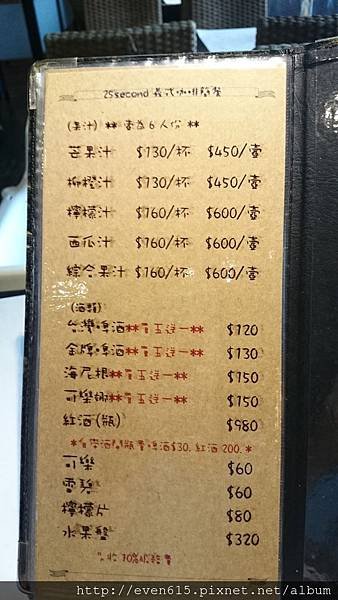 25second 義式咖啡簡餐
(果汁) ** 壹為6人份 **
芒果汁 $130/杯 $450/壹
柳橙汁 $130/杯 $450/壹
檸檬汁 $160/杯 $600/壹
西瓜汁 $160/杯 $600/壹
綜合果汁 $160/杯 $600/壹
(酒類)
台灣啤酒**買五送一** $120
金牌啤酒**買五送一** $130
海尼根**買五送一** $150
可樂娜**買五送一** $150
紅酒(瓶) $980
*自帶酒開瓶費啤酒$30. 紅酒200.*
可樂 $60
雪碧 $60
檸檬片 $80
水果盤 $320
*收10%服務費
http://even615.pixnet.net/album